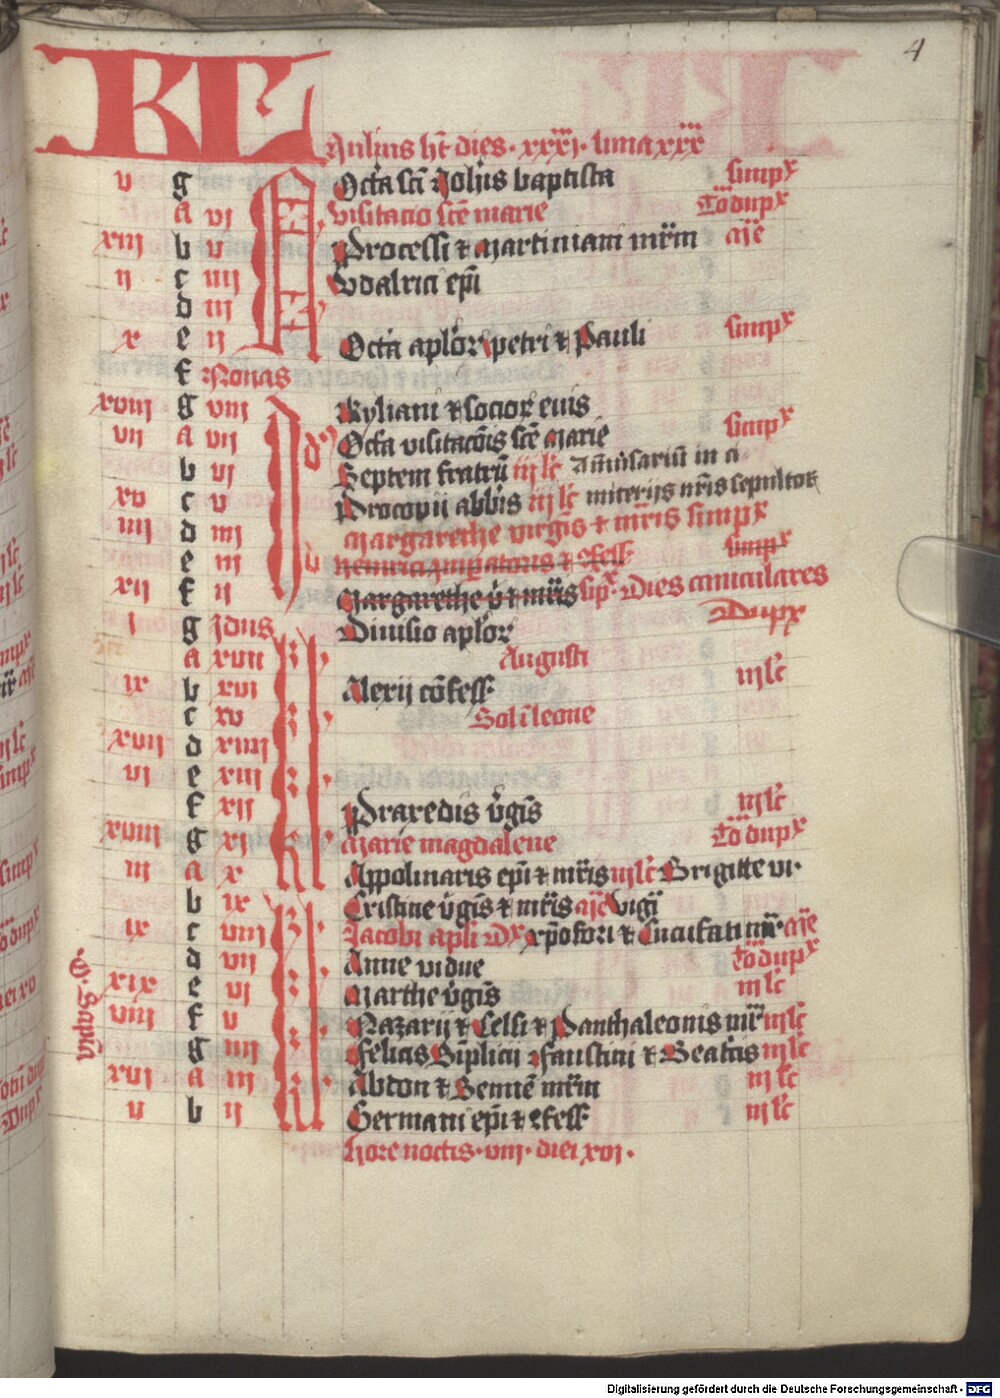 4
KL
Julius ht dies · xxxi · luna xxx
v g Octa sci Johis baptista simpx
A vi visitacio sce marie Totdupx
xiii b v Processi ⁊ Martiniani mrm
ii c iiii Vdalrici epi
d iii
x e ii Octa aplor petri ⁊ Pauli simpx
f Nonas
xviii g viii Kyliani ⁊ socior eius
vii A vii Octa visitacois sce Marie simpx
b vi Septem fratru iij lc Aniuersariu in ci
xv c v Procopii abbis iij lc miterijs nris sepultor
iiii d iiii Margarethe virgis ⁊ mris simpx
e iii Heinrici imperatoris ⁊ cfess simpx
xii f ii Margarethe v ⁊ mris sipx Dies caniculares
i g Idus Diuisio aplor Dupx
A xvii Augusti
ix b xvi Alexij cofess iij lc
c xv Sol i leone
xvii d xiiii
vi e xiii
f xii Praxedis vgis iij lc
xiiii g xi Marie magdalene Totdupx
iii A x Appolinaris epi ⁊ mris iij lc Brigitte vi·
b ix Cristine vgis ⁊ mris vigi
xi c viii Jacobi apli Dx xpofori ⁊ Cucufati mr
d vii Anne vidue Totdupx
xix e vi Marthe vgis iij lc
viii f v Nazarij ⁊ Celsi ⁊ Panthaleonis mr iij lc
g iiii Felicis Siplicii Faustini ⁊ Beatcis iij lc
xvi A iii Abdon ⁊ Sennen mrm iij lc
v b ii Germani epi ⁊ cfess iij lc
hore noctis · viii · diei xvi ·
Digitalisierung gefördert durch die Deutsche Forschungsgemeinschaft - DFG